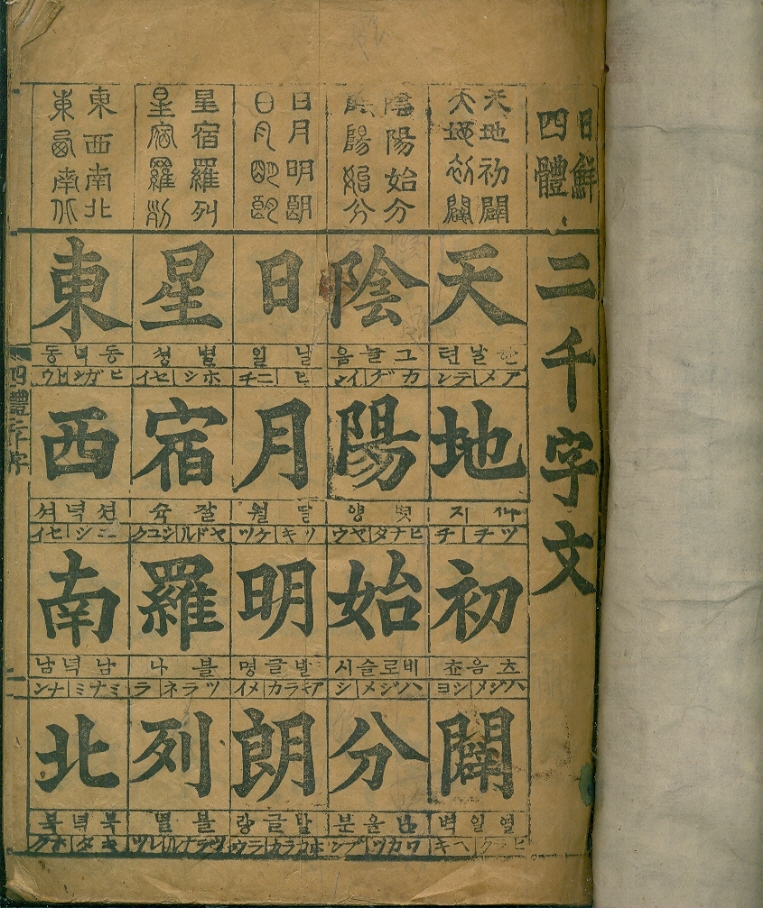 日鮮
四體
二千字文
天地初闢
天地初闢
天
날텬
アメ テン
地
지
ツチ チ
初
츠음쵸
ハジメ シヨ
闢
열일벽
ヒラク ヘキ
陰陽始分
陰陽始分
陰
그늘음
カゲ イン
陽
볏양
ヒナタ ヤウ
始
비로슬시
ハジメ シ
分
분
ワカツ ブン
日月明朗
日月明朗
日
날일
ヒ ニチ
月
달월
ツキ ゲツ
明
발글명
アキラカ メイ
朗
발글랑
ホガラカ ラウ
星宿羅列
星宿羅列
星
별셩
ホシ セイ
宿
잘슉
ヤドル シユク
羅
불나
ツラネ ラ
列
불렬
ツラナル レツ
東西南北
東西南北
東
동녁동
ヒガシ トウ
西
셧녁셔
ニシ セイ
南
남녁남
ミナミ ナン
北
북녁북
キタ ホク
四體千字
二